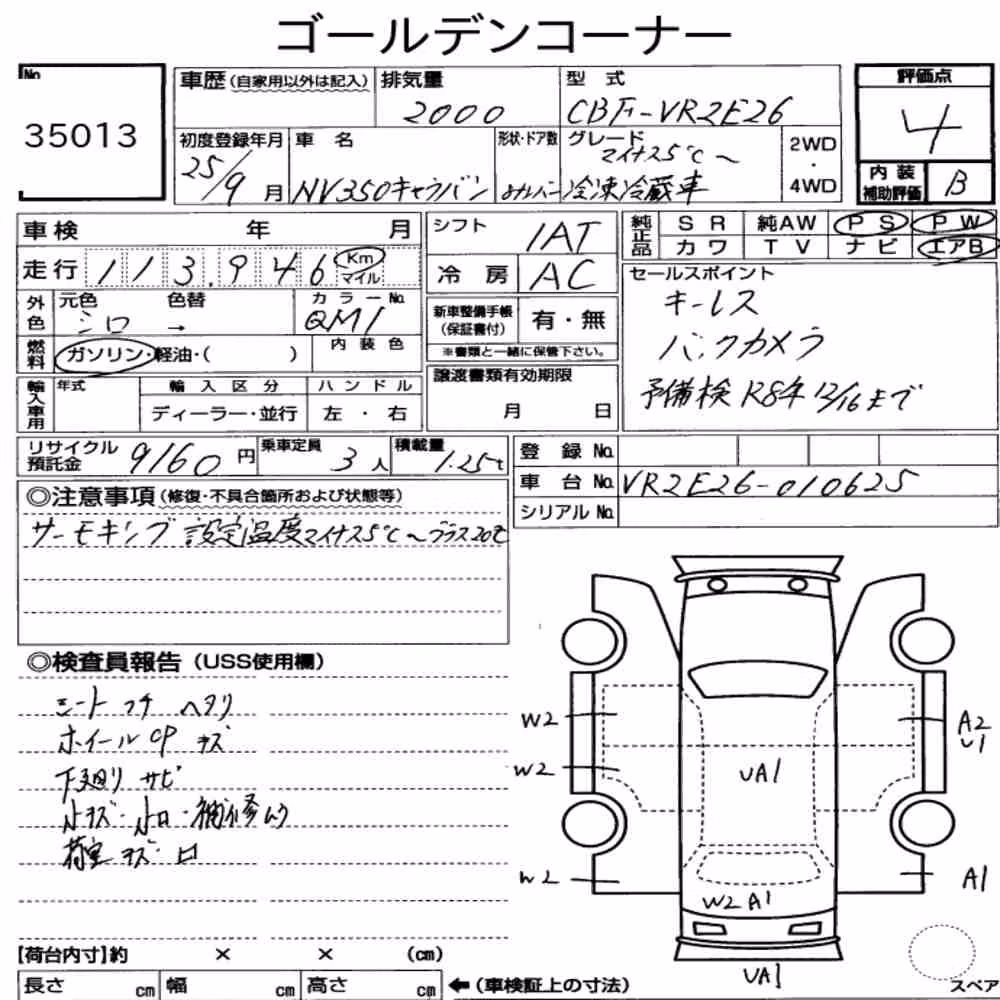 ゴールデンコーナー
No
35013
車歴(自家用以外は記入)
排気量
2000
型 式
CBF-VR2E26
初度登録年月
25/9月
車 名
NV350キャラバン
形状・ドア数
グレード
マイナス5℃〜
冷凍冷蔵車
2WD
・
4WD
評価点
4
内装
補助評価
B
車検 年 月
走行 113,946 Km
マイル
外色
元色 シロ → 色替
カラーNo.
QM1
燃料
ガソリン・軽油・( )
内装色
輸入車用
年式
輸入区分
ディーラー・並行
ハンドル
左 ・ 右
シフト
IAT
冷房
AC
新車整備手帳
(保証書付)
有・無
※書類と一緒に保管下さい。
譲渡書類有効期限
月 日
純正品
SR 純AW PS PW
カワ TV ナビ エアB
セールスポイント
キーレス
バックカメラ
予備検 R8年 12/16まで
リサイクル
預託金
9160円
乗車定員
3人
積載量
1.25t
登録 No.
車台 No. VR2E26-010625
シリアル No.
◎注意事項(修復・不具合箇所および状態等)
サーモキング 設定温度マイナス5℃〜プラス20℃
◎検査員報告(USS使用欄)
シート コゲ ヘタリ
ホイールCP キズ
下廻り サビ
小キズ・小凹・補修ムラ
荷室 キズ・凹
W2
W2
W2
A2
U1
A1
UA1
W2 A1
UA1
スペア
【荷台内寸】約 × × (cm)
長さ cm 幅 cm 高さ cm ←(車検証上の寸法)